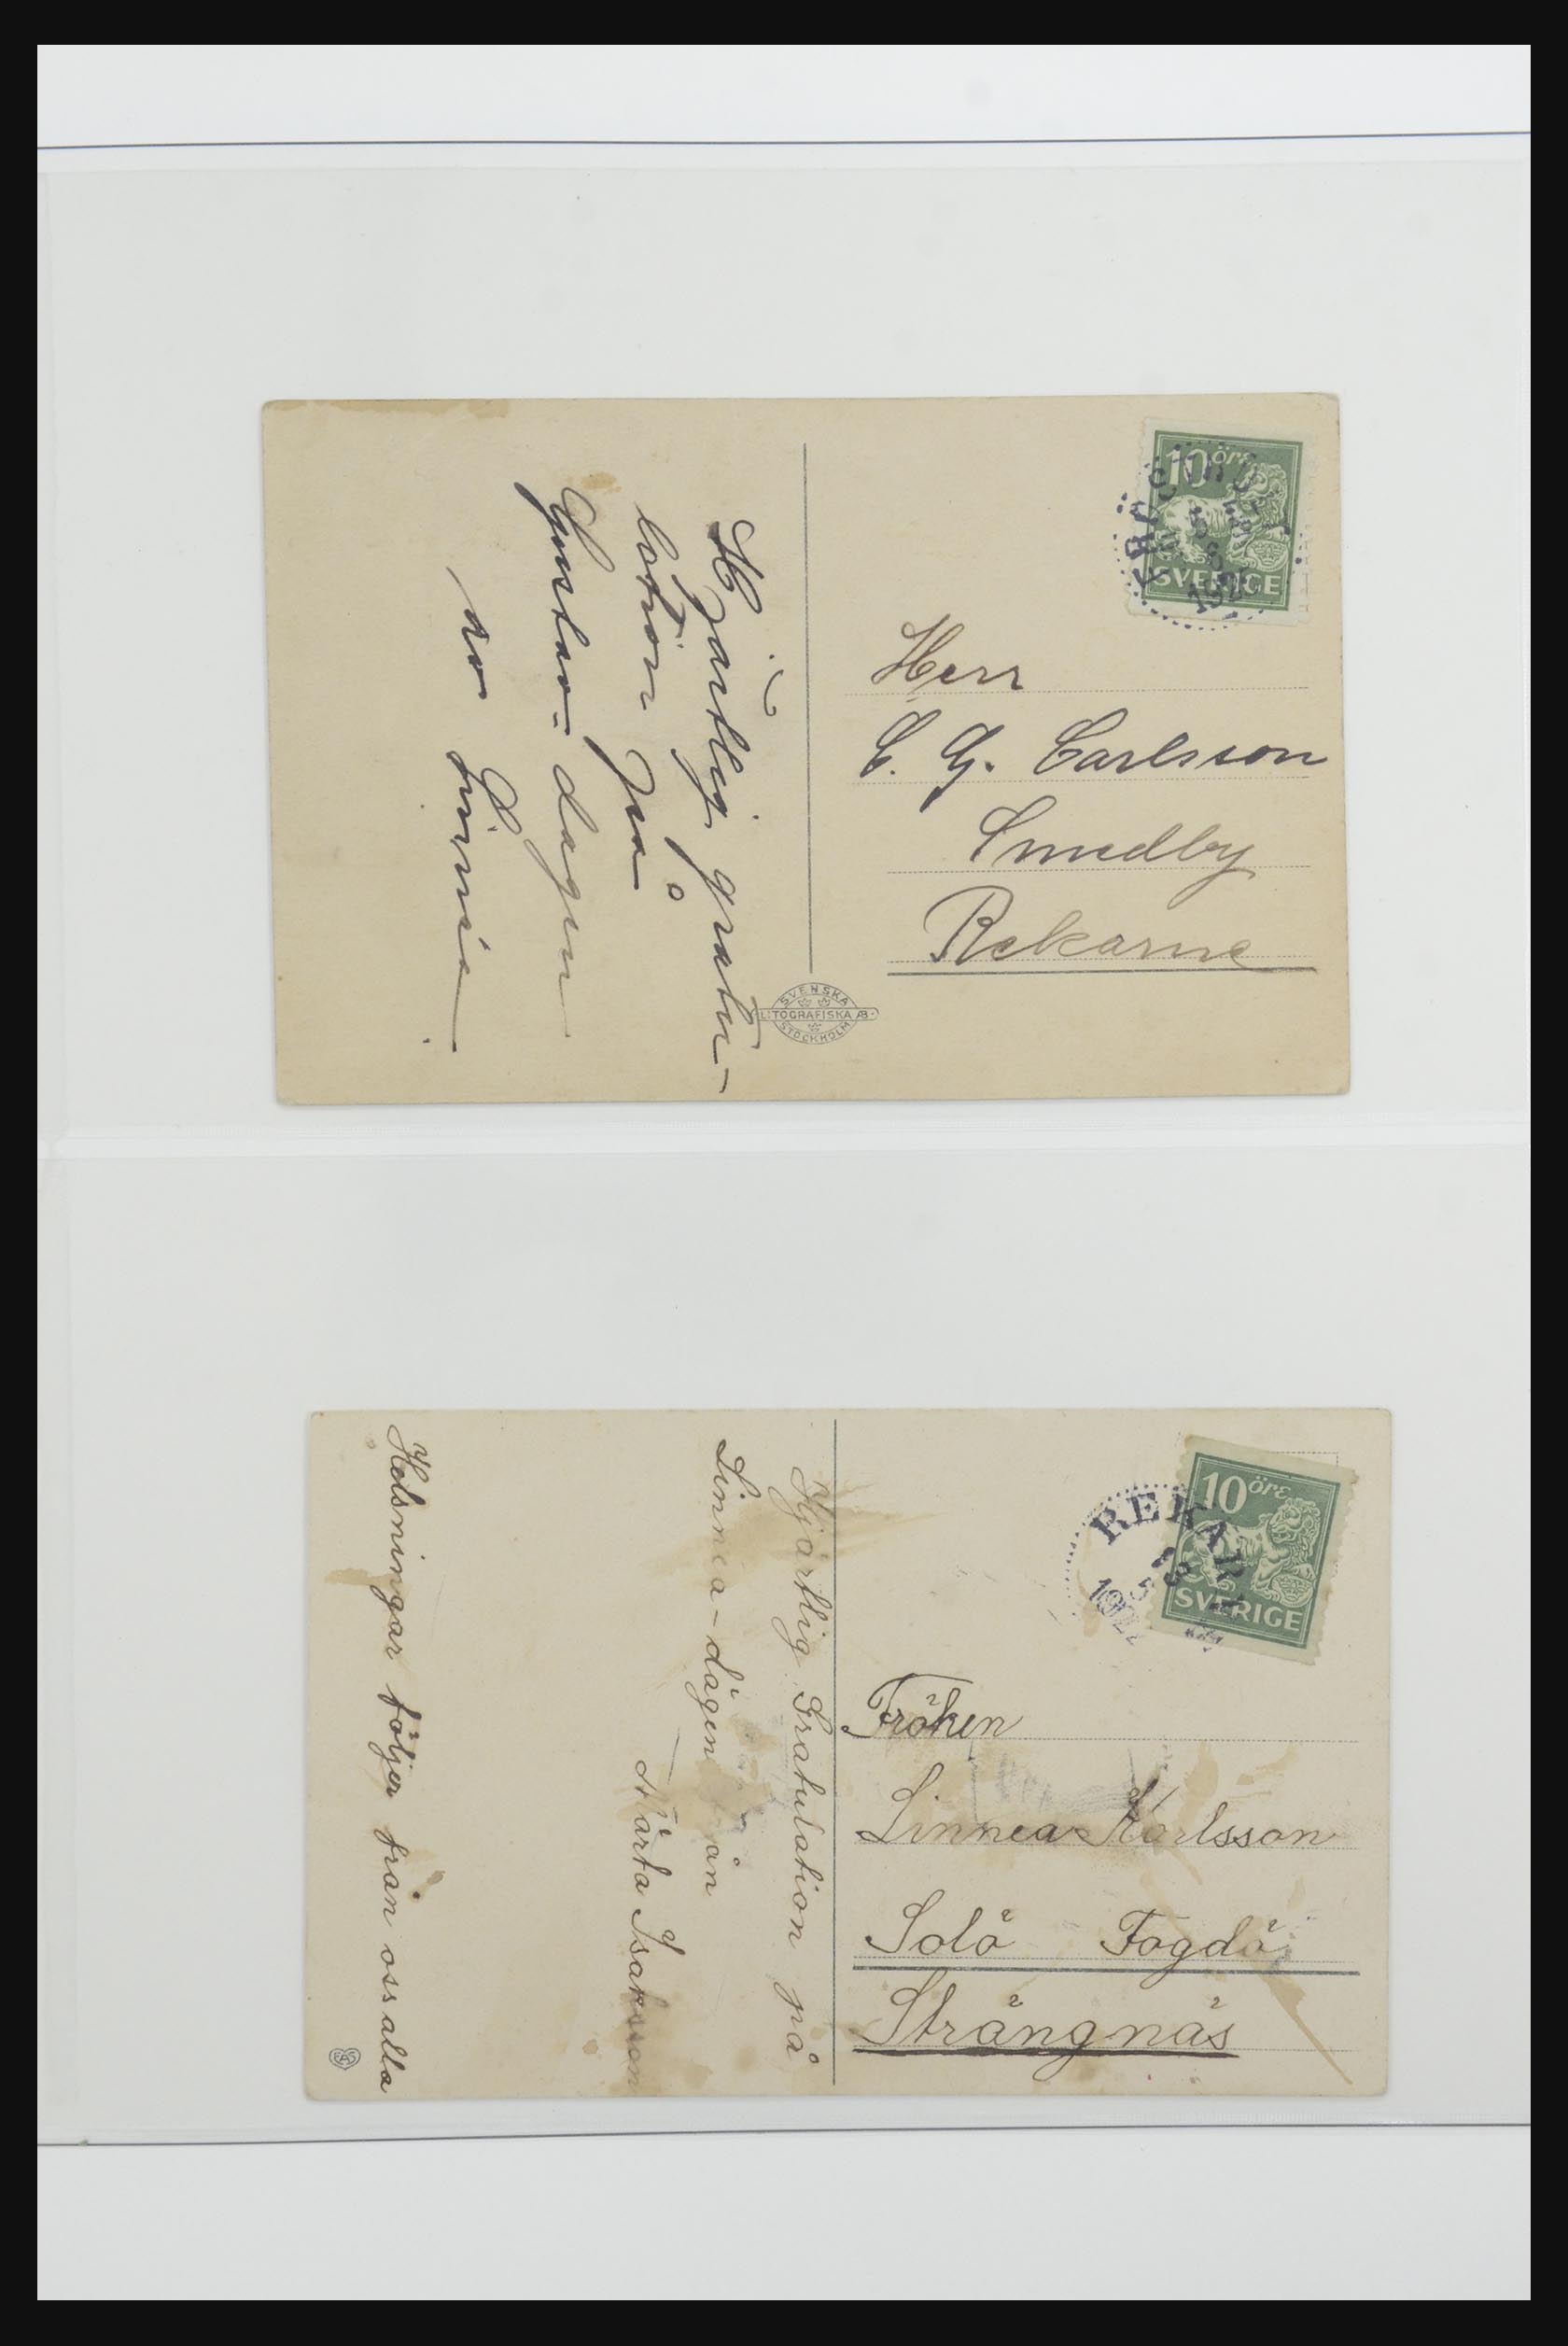 10 öre
SVERIGE
Herr
C. G. Carlsson
Smedby
Rekarne
Hjärtlig gratu-
lation på
Gustav-dagen
av Linnéa
SVENSKA
LITOGRAFISKA AB.
STOCKHOLM
10 öre
SVERIGE
REKARNE
23
5
192
Fröken
Linnea Karlsson
Solö Fogdö
Strängnäs
Hjärtlig Gratulation på
Linnea-dagen från
Märta Isaksson
Helsningar följer från oss alla
EAS